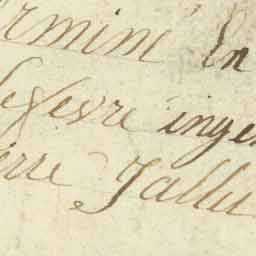 ermine En
Lefevre ingen
erre Jallu